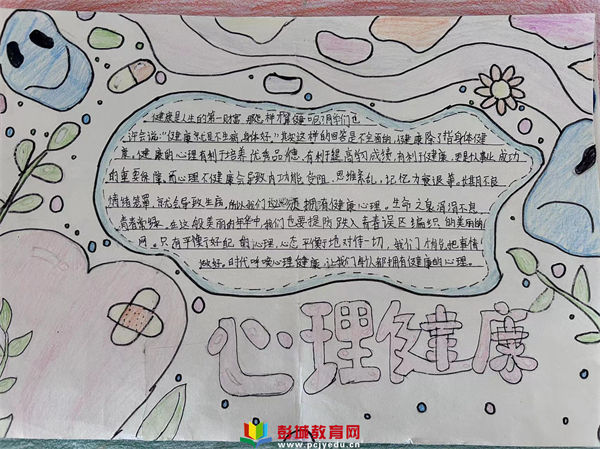 健康是人生的第一财富,那怎样算健康呢?同学们也
许会说:"健康就是不生病,身体好。"其实这样的回答是不全面的,健康除了指身体健
康,健康的心理有利于培养优秀品德,有利于提高学习成绩,有利于健康,更是从事业成功
的重要保障。而心理不健康会导致内功能受阻,思维紊乱,记忆力衰退等。长期不良
情绪笼罩,就会导致生病,所以我们应必须拥有健康心理。生命之泉涓涓不息
青春常驻,在这般美丽的年华中,我们也要提防跌入青春误区编织的美丽的
网。只有平衡了好配的心理,心态平衡地对待一切,我们才能把事情
做好。时代呼唤心理健康,让我们每人都拥有健康的心理。
心理健康
彭城教育网
www.pcjyedu.cn